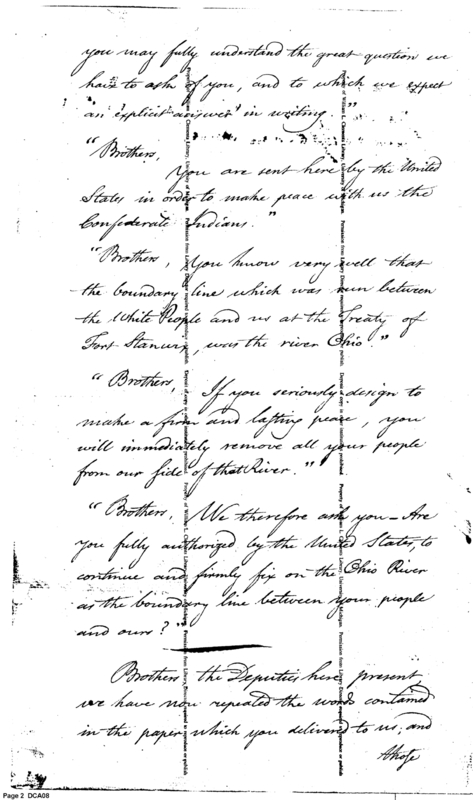 you may fully understand the great question we
have to ask of you, and to which we expect
an explicit answer in writing."
"Brothers,
You are sent here by the United
States in order to make peace with us the
Confederate Indians."
"Brothers, You know very well that
the boundary line which was run between
the White People and us at the Treaty of
Fort Stanwix, was the river Ohio."
"Brothers, If you seriously design to
make a firm and lasting peace, you
will immediately remove all your people
from our side of that River."
"Brothers, We therefore ask you – Are
you fully authorized by the United States, to
continue and firmly fix on the Ohio River
as the boundary line between your people
and ours?"
Brothers the Deputies here present
we have now repeated the words contained
in the paper which you delivered to us; and
those
Page 2 DCA08